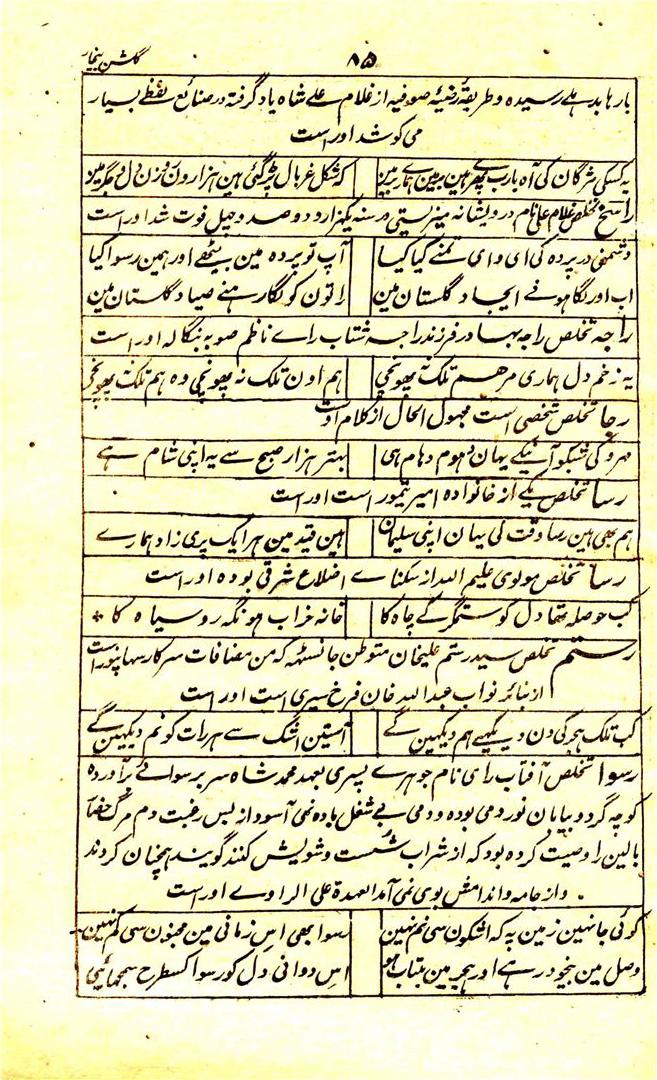 ۸۵ گلشن بیخار
بارها بدهلے رسیده و طریقهٔ رضیهٔ صوفیه از غلام علے شاه یاد گرفته در صنائع لفظے بسیار
می کوشد اوراست
یه کسکی مژگان کی آه یارب پھر هین برمین همارے برمین که شکل غربال پڑ گئی هین هزار ون روزن دل و جگر مین
راسخ تخلص غلام علی نام درویشانه میزیستی در سنه یکهزار و دو صد و چهل فوت شد اوراست
دشمنی در پرده کی ای وای تمنے کیا کیا آپ تو پرده مین بیٹھے اور همین رسوا کیا
اب اور لگا هونے ایجاد گلستان مین راتون کو لگا رهنے صیاد گلستان مین
راجه تخلص راجه بهادر فرزند راجه شتاب راے ناظم صوبه بنگاله اوراست
یه زخم دل هماری مرهم تلک نه پهونچی هم اون تلک نه پهونچی وه هم تلک نه پهونچی
رجا تخلص شخصی است مجهول الحال از کلام اوست
مهرو کی شبکو آنیکے یهان دهوم دهام هی بهتر هزار صبح سے یه اپنی شام هے
رسا تخلص یکے از خانواده امیر تیمور است اوراست
هم بھی هین رسا وقت کی یهان اپنی سلیمان هین قید مین هر ایک پری زاد همارے
رسا تخلص مولوی علیم الله از سکناے اضلاع شرقی بوده اوراست
کب حوصله تھا دل کو ستمگر کے چاه کا خانه خراب هو نگه روسیاه کا *
رستم تخلص سید رستم علیخان متوطن جانسٹهه که من مضافات سرکار سهارنپور است
از نبائر نواب عبدالله خان فرخ سیری است اوراست
کب تلک هجر کی دن دیکھیے هم دیکهین گے آستین اشک سے هر رات کو نم دیکهین گے
رسوا تخلص آفتاب رای نام جوهرے پسری بعهد محمد شاه سر برسوائے برآورده
کوچه گرد و بیابان نورد می بوده و دمی بے شغل باده نمی آسود از بس رغبت دم مرگ حضار
بالین را وصیت کرده بود که از شراب شست و شویش کنند گویند همچنان کردند
و از جامه و اندامش بوی نمی آمد العهدة علی الراوے اوراست
کوئی جا نهین زمین په که اشکون سی نم نهین رسوا بھی اس زمانی مین مجنون سی کم نهین
وصل مین بیخود رهے اور هجر مین بیتاب هو اس دوانی دل کو رسوا کسطرح سمجهائیے